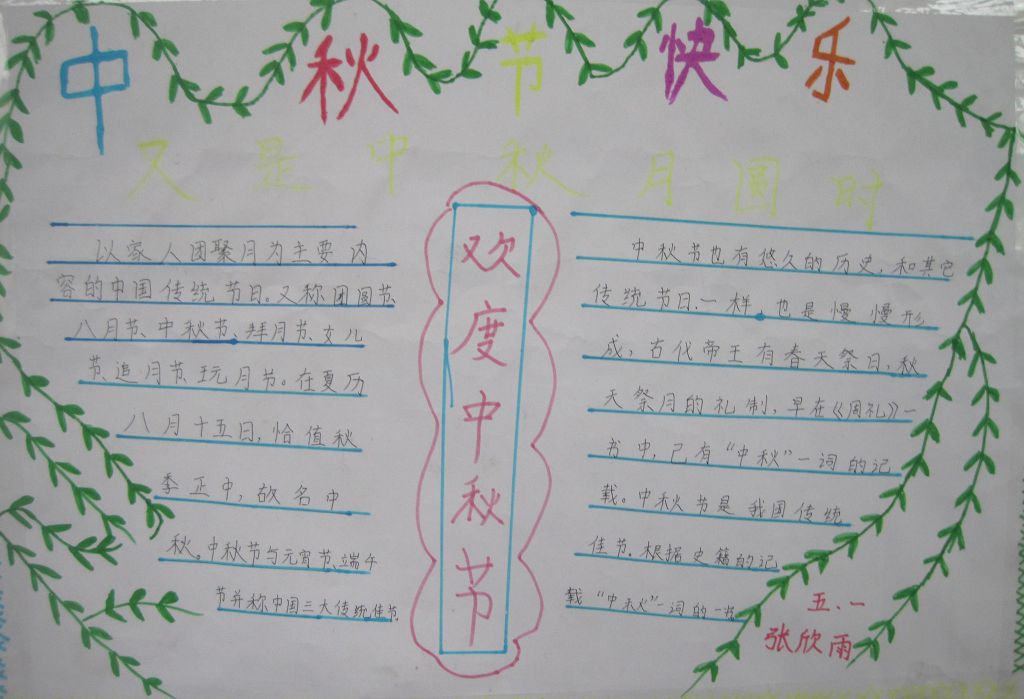 中秋节快乐
又是中秋月圆时
以家人团聚月为主要内
容的中国传统节日。又称团圆节、
八月节、中秋节、拜月节、女儿
节、追月节、玩月节。在夏历
八月十五日,恰值秋
季正中,故名中
秋。中秋节与元宵节、端午
节并称中国三大传统佳节
欢度中秋节
中秋节也有悠久的历史,和其它
传统节日一样。也是慢慢形
成,古代帝王有春天祭日,秋
天祭月的礼制,早在《周礼》一
书中,已有“中秋”一词的记
载。中秋节是我国传统
佳节.根据史籍的记
载“中秋”一词的一书
五.一
张欣雨